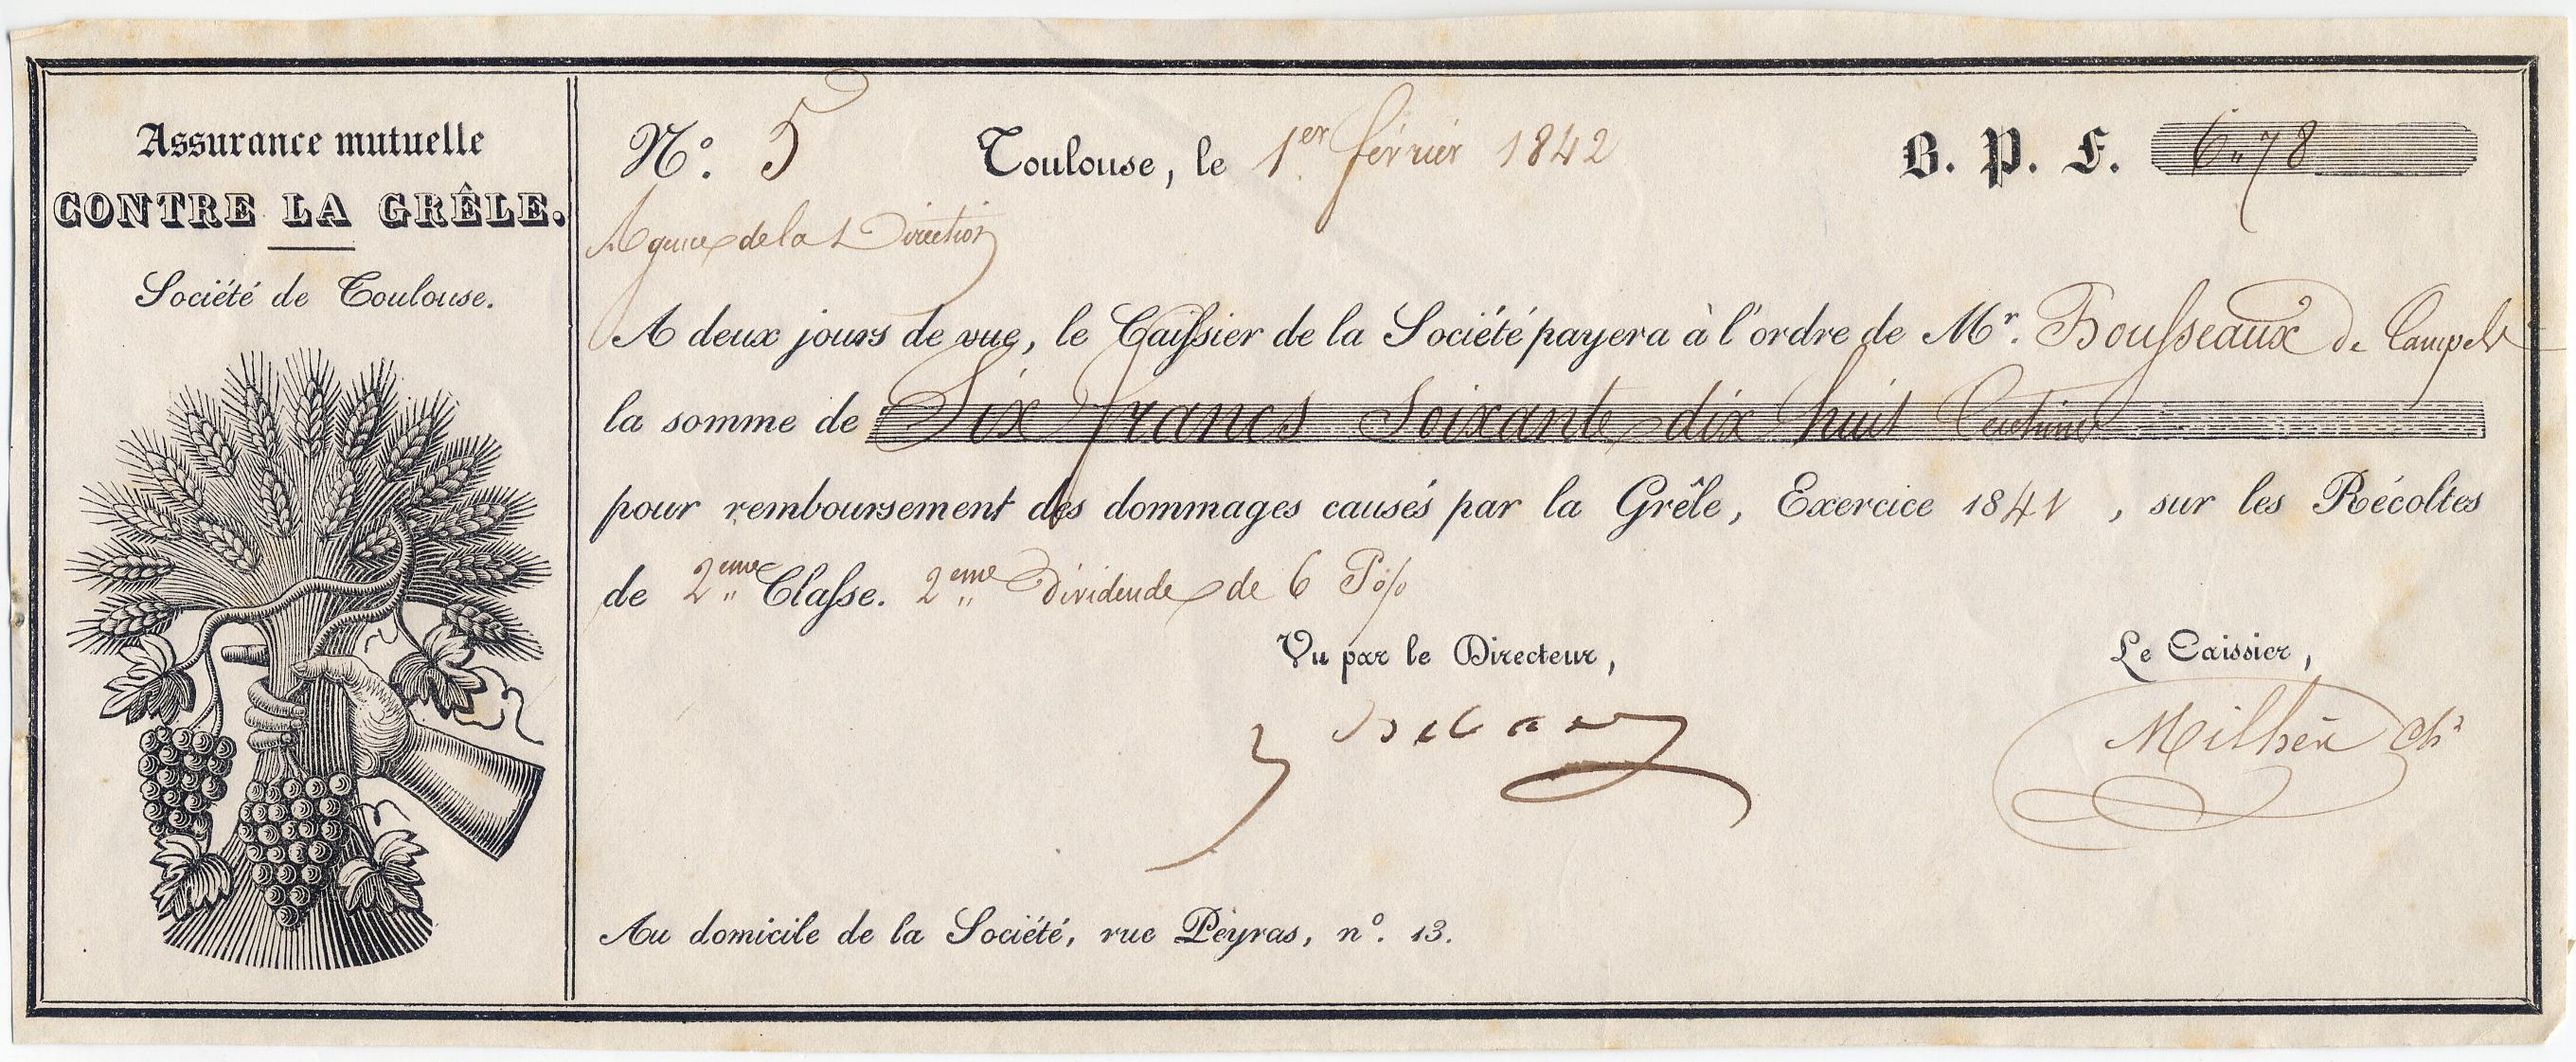 Assurance mutuelle
CONTRE LA GRÊLE.
Société de Toulouse.
N.° 5 Toulouse, le 1er février 1842 B. P. F. 6 „ 78
Agence de la Direction
A deux jours de vue, le Caissier de la Société payera à l'ordre de Mr. Bousseaux de
la somme de Six francs Soixante dix huit Centimes
pour remboursement des dommages causés par la Grêle, Exercice 1841, sur les Récoltes
de 2eme Classe. 2eme Dividende de 6 P%
Vu par le Directeur,
Le Caissier,
Au domicile de la Société, rue Peyras, n°. 13.